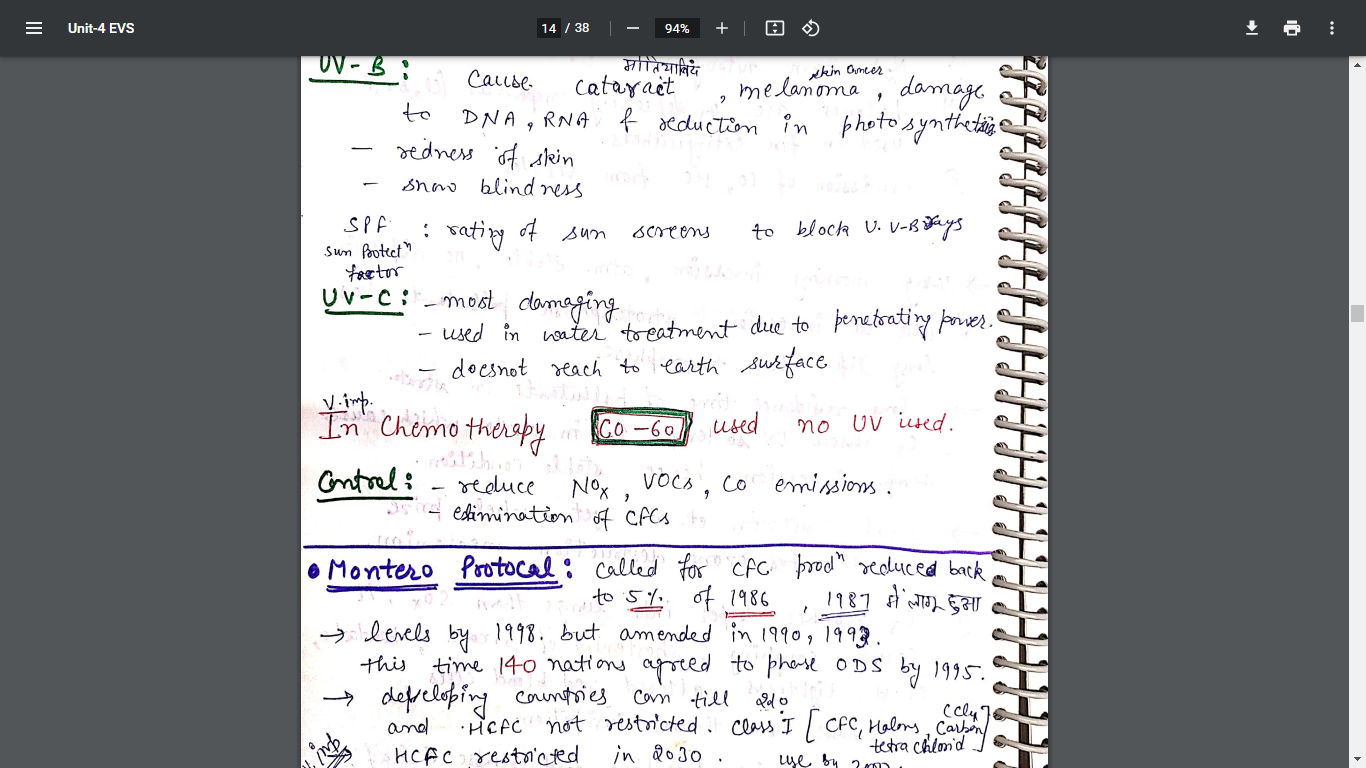 Unit-4 EVS
14 / 38
94%
UV-B :
Cause cataract मोतियाबिंद , melanoma skin cancer , damage
to DNA, RNA & reduction in photosynthesis
— redness of skin
— snow blindness
SPF : rating of sun screens to block U.V-B rays
Sun Protectⁿ
factor
UV-C : – most damaging
– used in water treatment due to penetrating power.
– doesnot reach to earth surface
V.imp.
In Chemotherapy Co-60 used no UV used.
Control : – reduce NOx, VOCs, CO emissions.
– elimination of CFCs
• Montero Protocal : called for CFC prodⁿ reduced back
to 5% of 1986 , 1987 में लागू हुआ
→ levels by 1998. but amended in 1990, 1992.
this time 140 nations agreed to phase ODS by 1995.
→ developing countries can till
and HCFC not restricted. class I [CFC, Halons, Carbon
CCl4
tetrachlorid]
V.imp
HCFC restricted in 2030. use by